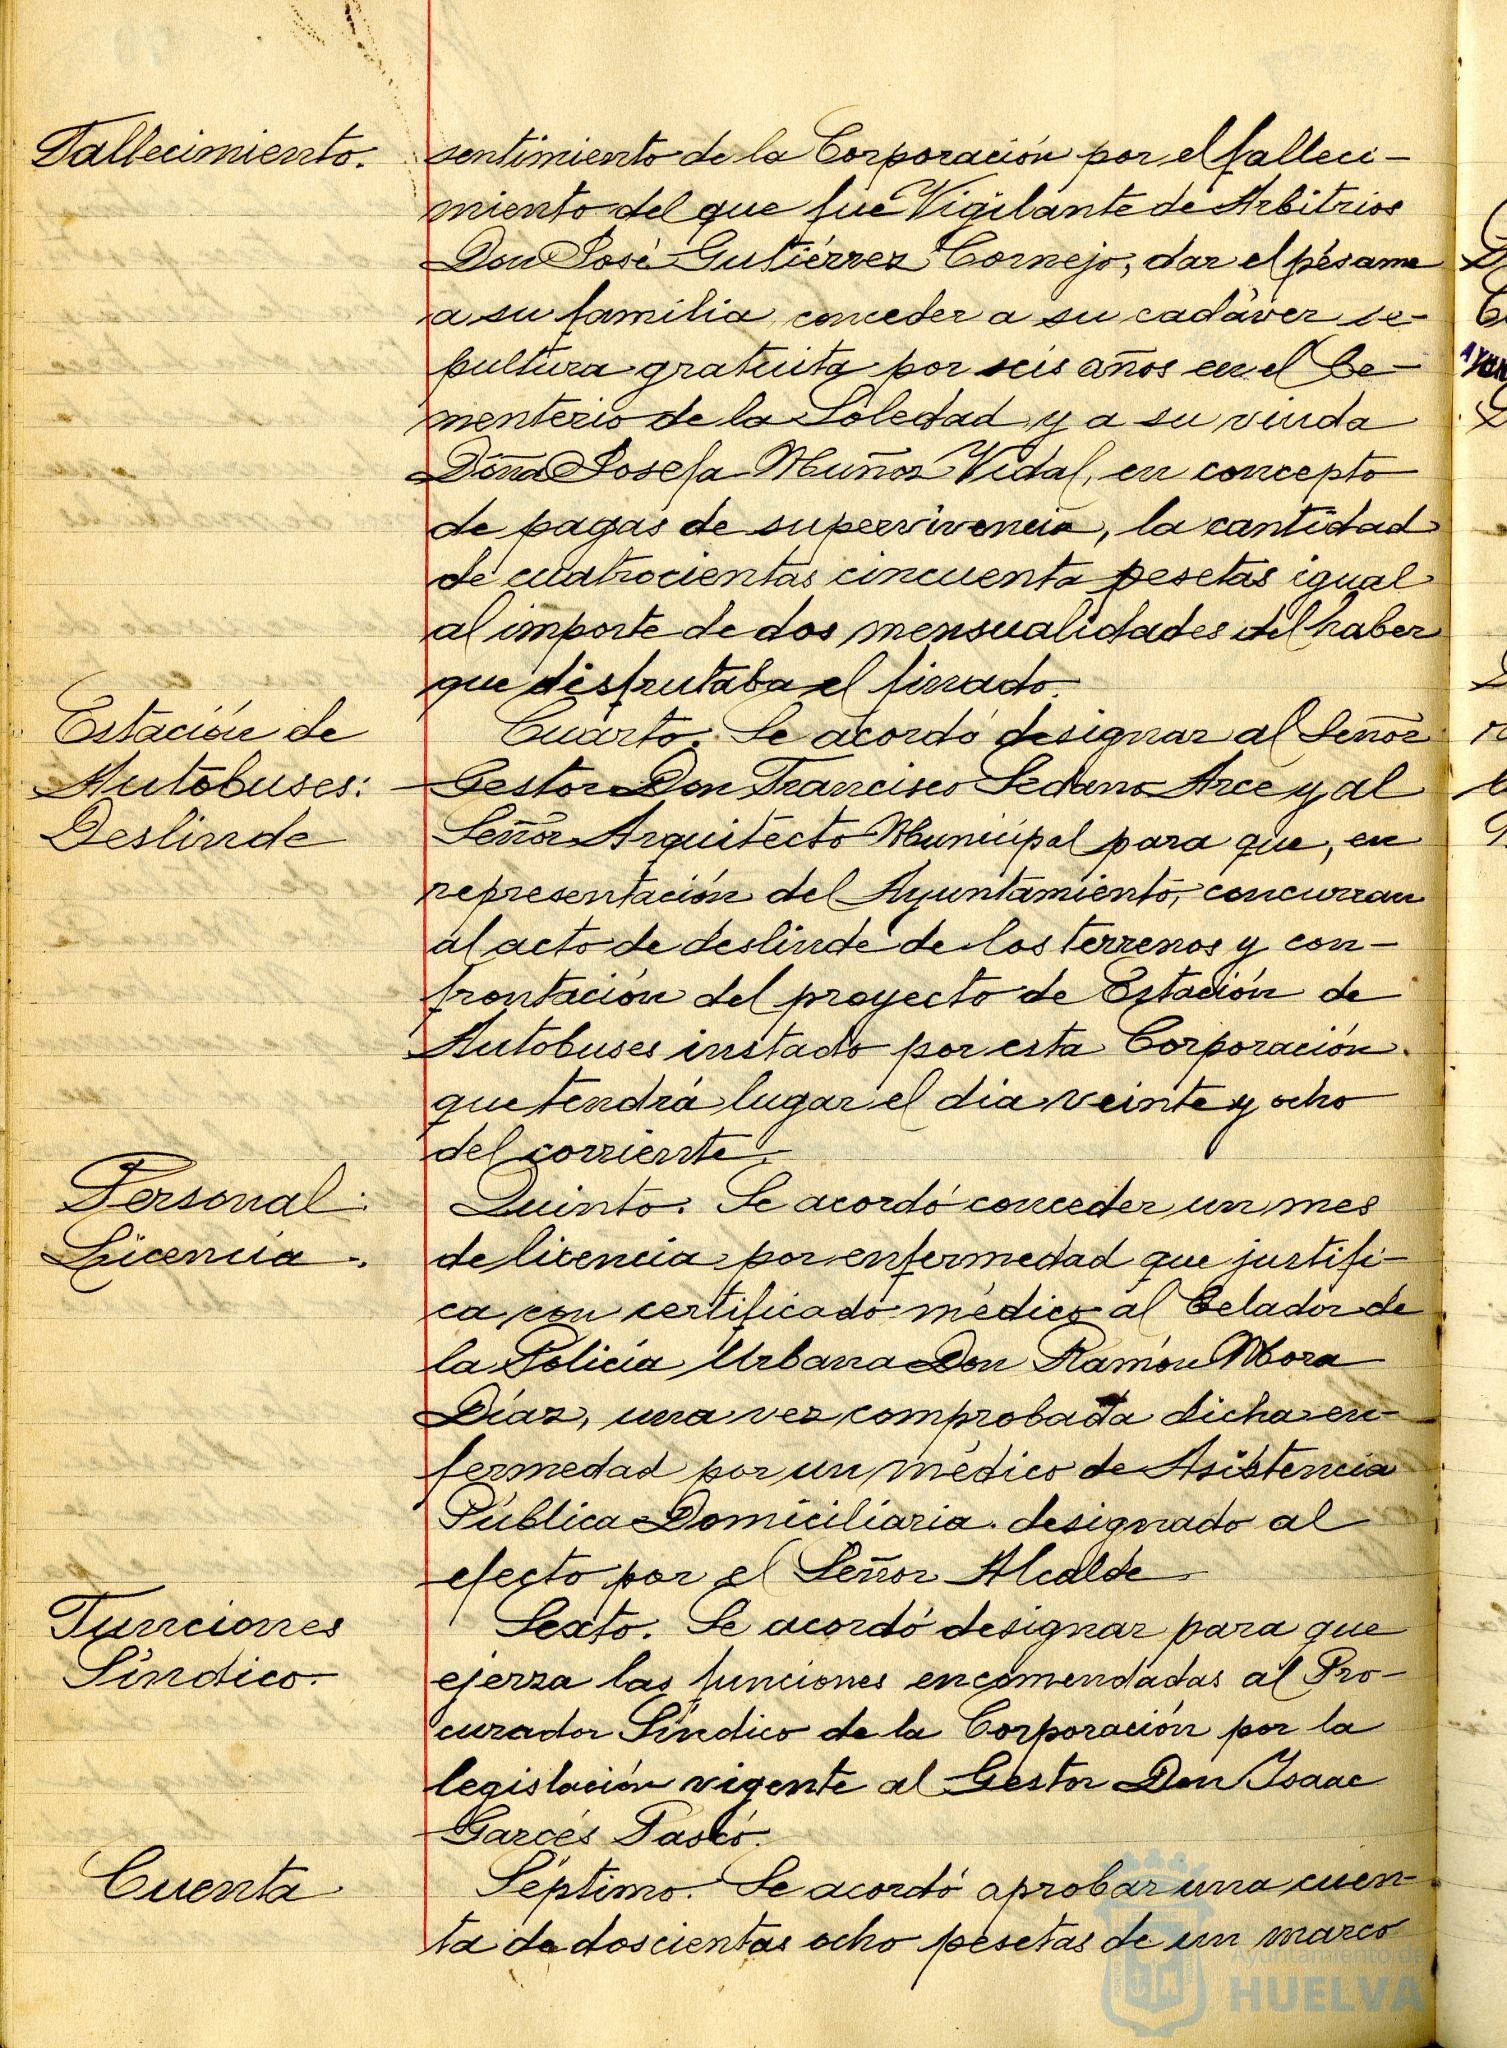 Fallecimiento.
sentimiento de la Corporación por el falleci-
miento del que fue Vigilante de Arbitrios
Don José Gutiérrez Cornejo, dar el pésame
a su familia, conceder a su cadáver se-
pultura gratuita por seis años en el Ce-
menterio de la Soledad y a su viuda
Doña Josefa Muñoz Vidal, en concepto
de pagas de supervivencia, la cantidad
de cuatrocientas cincuenta pesetas igual
al importe de dos mensualidades del haber
que disfrutaba el finado.
Estación de
Autobuses:
Deslinde
Cuarto. Se acordó designar al Señor
Gestor Don Francisco Sedano Arce y al
Señor Arquitecto Municipal para que, en
representación del Ayuntamiento, concurran
al acto de deslinde de los terrenos y con-
frontación del proyecto de Estación de
Autobuses instado por esta Corporación.
que tendrá lugar el dia veinte y ocho
del corriente.
Personal:
Licencia.
Quinto. Se acordó conceder un mes
de licencia por enfermedad que justifi-
ca con certificado médico al Celador de
la Policía Urbana Don Ramón Mora
Díaz, una vez comprobada dicha en-
fermedad por un médico de Asistencia
Pública Domiciliaria designado al
efecto por el Señor Alcalde
Funciones
Síndico.
Sexto. Se acordó designar para que
ejerza las funciones encomendadas al Pro-
curador Síndico de la Corporación por la
legislación vigente al Gestor Don Isaac
Garcés Pascó.
Cuenta
Séptimo. Se acordó aprobar una cuen-
ta de doscientas ocho pesetas de un marco
Ayuntamiento de
HUELVA